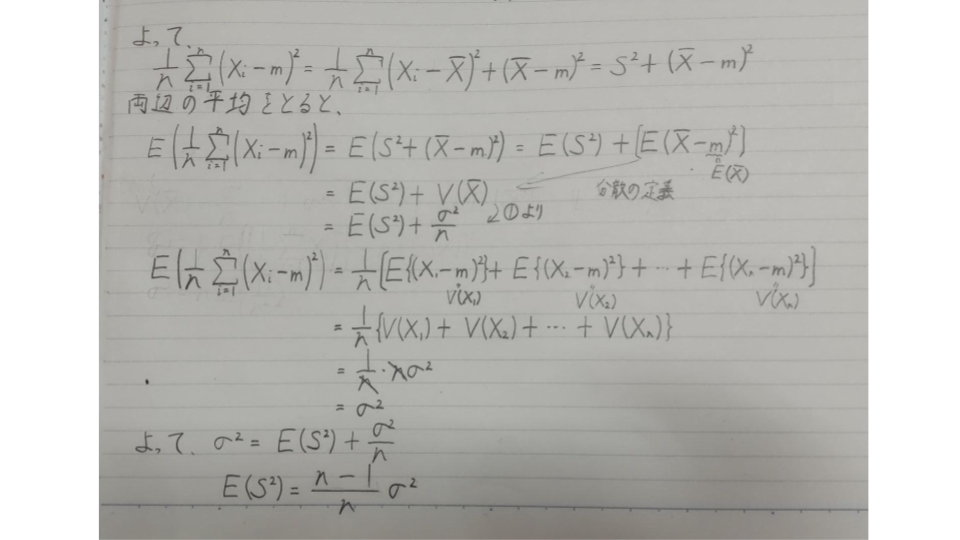 よって、
1/n Σ_{i=1}^{n} (Xi − m)² = 1/n Σ_{i=1}^{n} (Xi − X̄)² + (X̄ − m)² = S² + (X̄ − m)²
両辺の平均をとると、
E(1/n Σ_{i=1}^{n} (Xi − m)²) = E(S² + (X̄ − m)²) = E(S²) + [E(X̄ − m)²]
E(X̄)
= E(S²) + V(X̄) 分散の定義
= E(S²) + σ²/n ①より
E(1/n Σ_{i=1}^{n} (Xi − m)²) = 1/n [E{(X₁ − m)²} + E{(X₂ − m)²} + ⋯ + E{(Xn − m)²}]
V(X₁) V(X₂) V(Xn)
= 1/n {V(X₁) + V(X₂) + ⋯ + V(Xn)}
= 1/n · nσ²
= σ²
よって、σ² = E(S²) + σ²/n
E(S²) = (n − 1)/n σ²